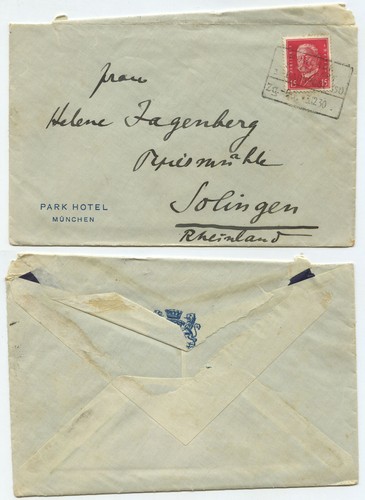 Frau
Helene Fagenberg
Papiermühle
Solingen
Rheinland
PARK HOTEL
MÜNCHEN
15 15